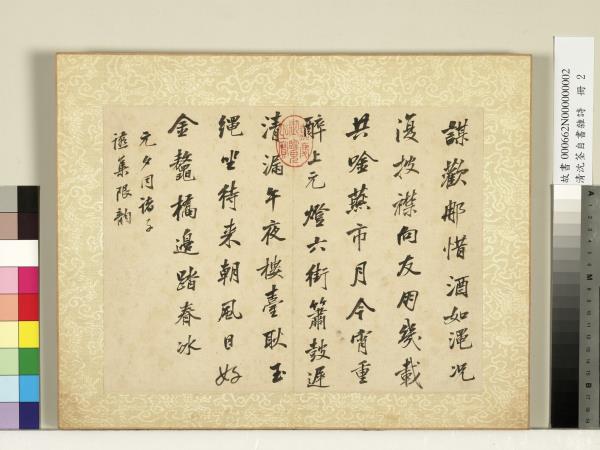 謀歡那惜酒如澠况
復披襟向友朋幾載
共唫燕市月今宵重
醉上元燈六街簫鼓遲
清漏午夜樓臺耿玉
繩坐待来朝風日好
金鼇橋邊踏春冰
元夕同諸子
讌集限韵
故書000662N000000002
清沈荃自書雜詩 冊 2